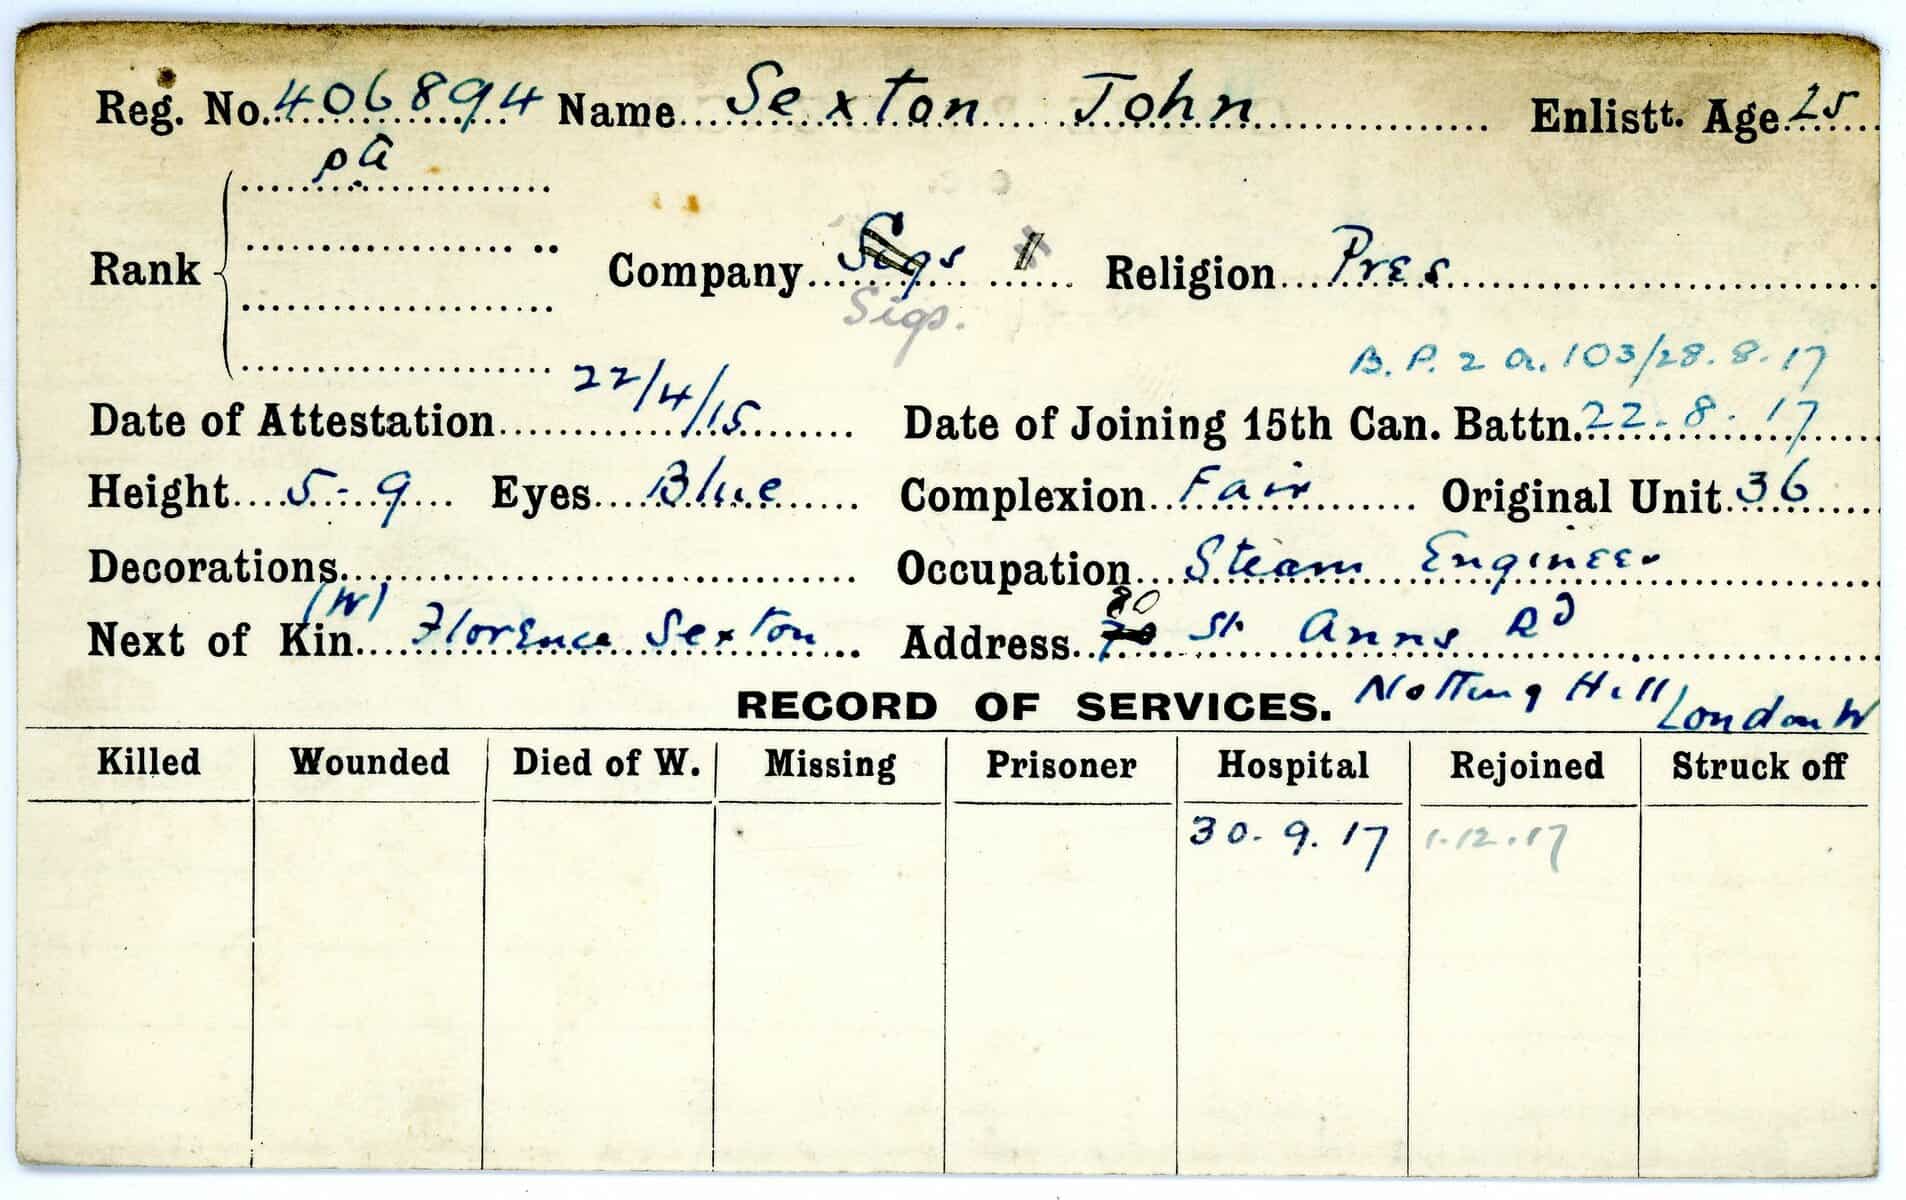 Reg. No. 406894 Name Sexton John Enlistt. Age 25
Rank Company Sigs Religion Pres
Sigs.
B. P. 2 a. 103/28.8.17
Date of Attestation 22/4/15 Date of Joining 15th Can. Battn. 22-8-17
Height 5-9 Eyes Blue Complexion Fair Original Unit 36
Decorations Occupation Steam Engineer
Next of Kin (W) Florence Sexton Address 80 St. Anns Rd
RECORD OF SERVICES. Notting Hill London W
Killed Wounded Died of W. Missing Prisoner Hospital Rejoined Struck off
30.9.17 1.12.17